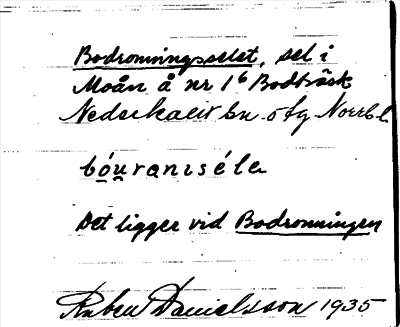 Bodronningsselet, sel i
Moån å nr 1⁶ Bodträsk
Nederkalix sn. o tg Norrb.l.
bóuranıséle
Det ligger vid Bodronningen
Ruben Danielsson 1935